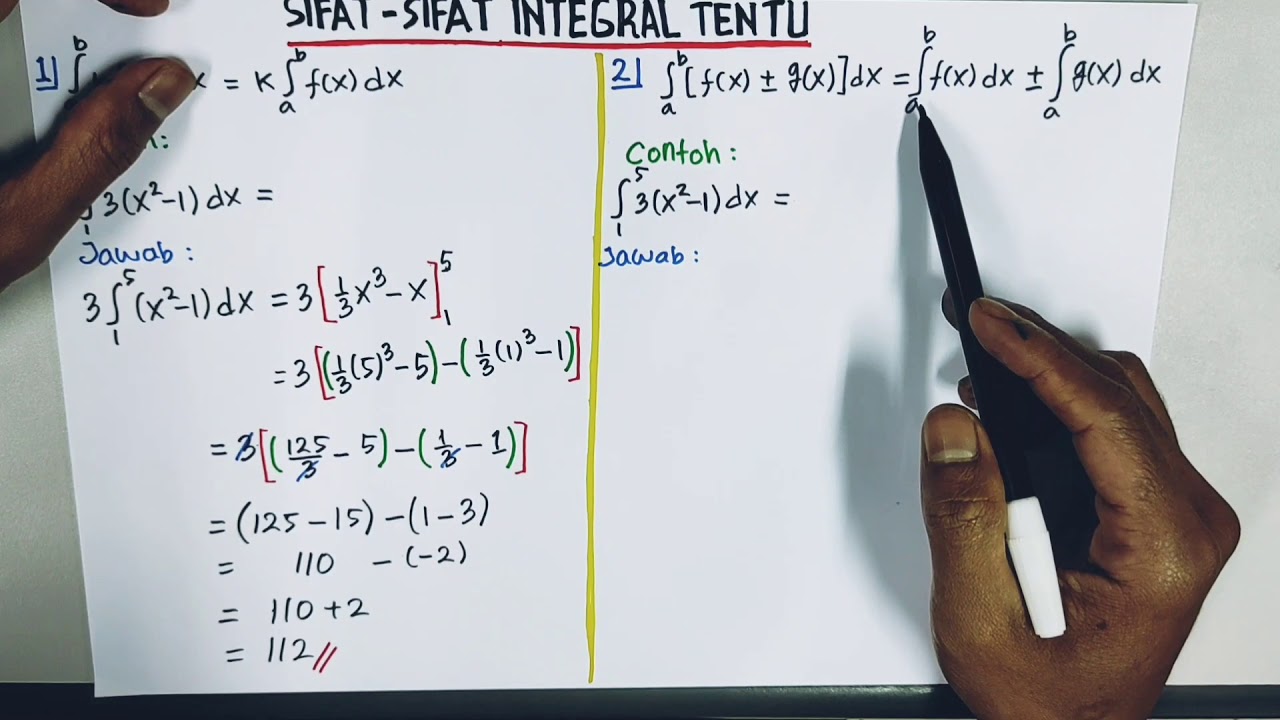 SIFAT-SIFAT INTEGRAL TENTU
1] ∫ b x = K ∫ₐᵇ f(x) dx
:
∫₁ 3(x²-1) dx =
Jawab :
3 ∫₁⁵ (x²-1) dx = 3 [⅓x³ - x]₁⁵
= 3 [(⅓(5)³ - 5) - (⅓(1)³ - 1)]
= 3 [(125/3 - 5) - (1/3 - 1)]
= (125 - 15) - (1 - 3)
= 110 - (-2)
= 110 + 2
= 112 //
2] ∫ₐᵇ [f(x) ± g(x)] dx = ∫ₐᵇ f(x) dx ± ∫ₐᵇ g(x) dx
Contoh :
∫₁⁵ 3(x²-1) dx =
Jawab :